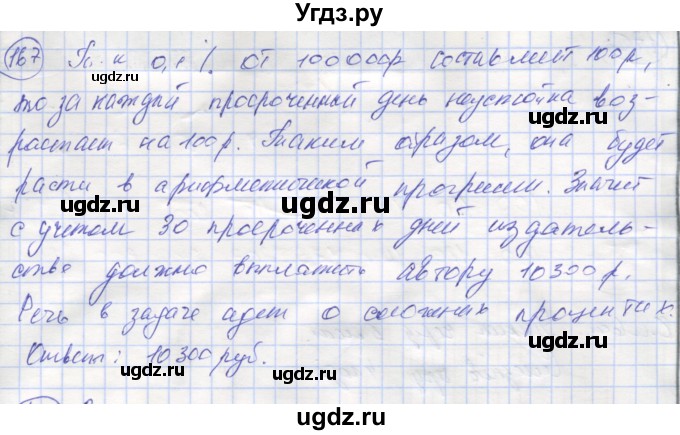 Угдз.ру
167 Т. к 0,1 % от 100000р составляет 100р,
то за каждый просроченный день неустойка воз-
растает на 100р. Таким образом, она будет
расти в арифметической прогрессии. Значит
с учетом 30 просроченных дней издатель-
ство должно выплатить автору 10300р.
Речь в задаче идет о сложных процентах.
Ответы: 10300 руб.
ugdz.ru
ugdz.ru
ugdz.ru
ugdz.ru
ugdz.ru
ugdz.ru
ugdz.ru
ugdz.ru
ugdz.ru
ugdz.ru